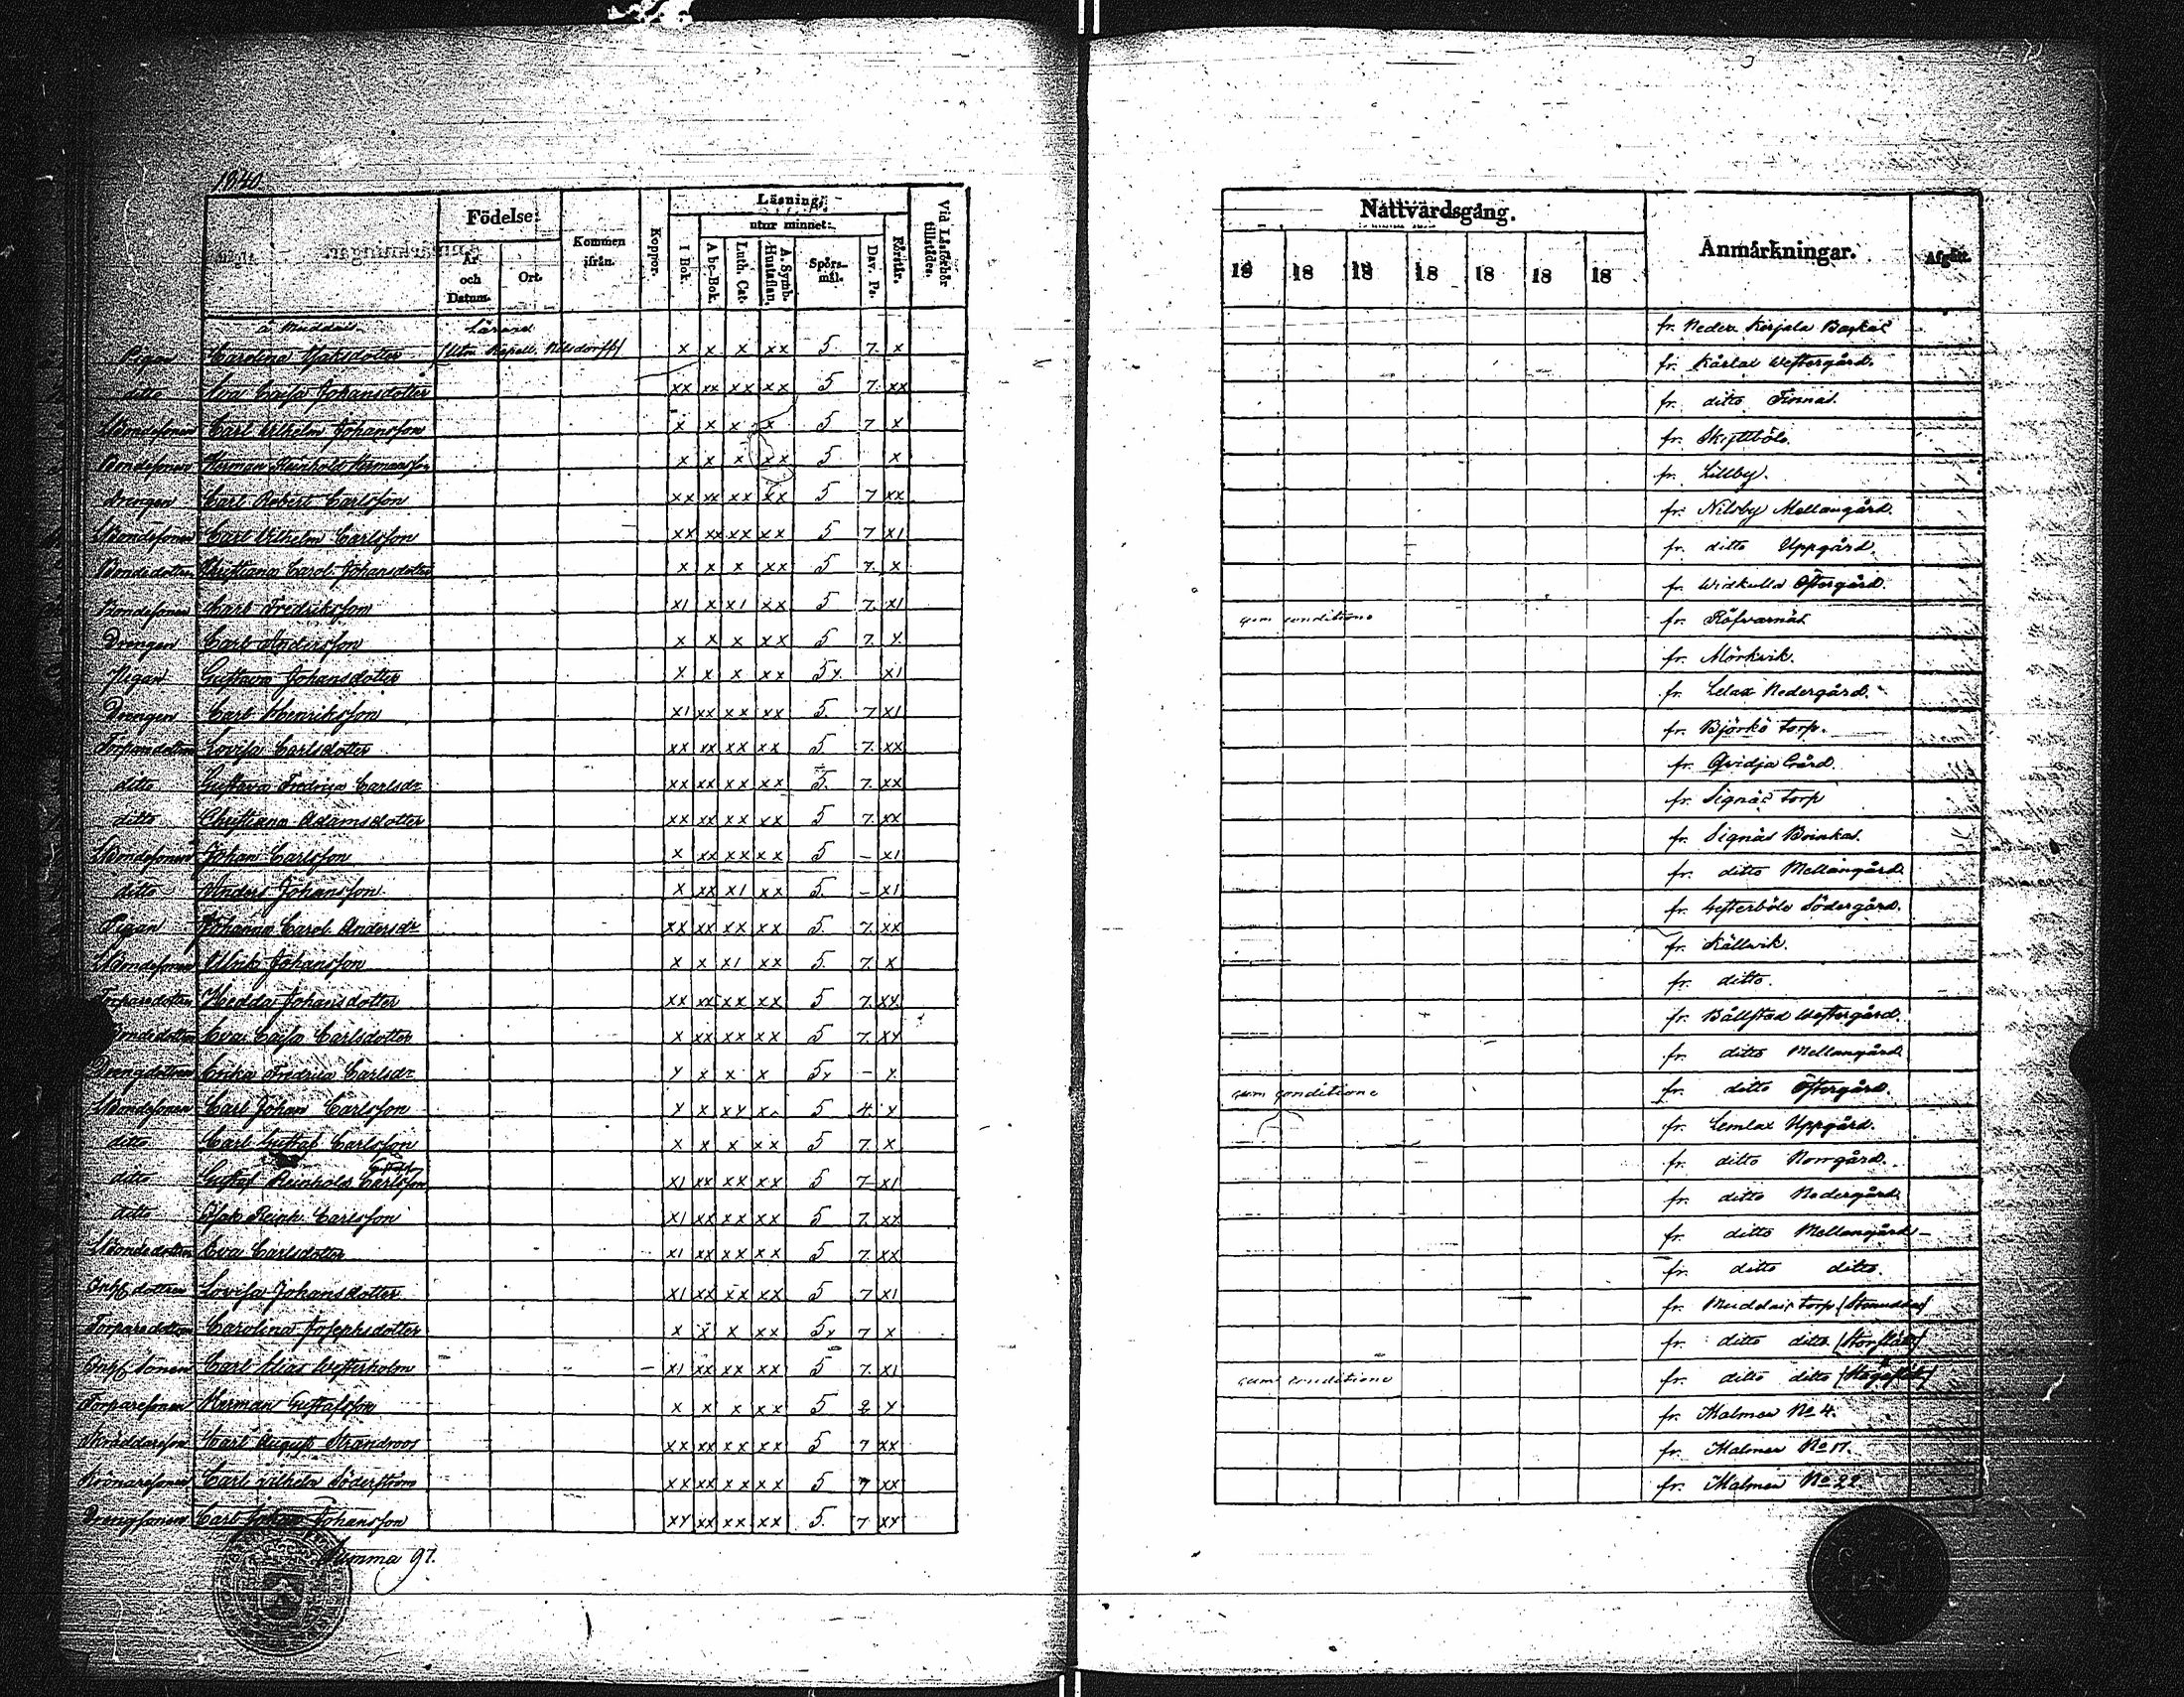 1840.
Födelse:
År och Datum.
Ort.
Kommen ifrån.
Koppor.
Läsning;
utur minnet:
I Bok.
A bc-Bok.
Luth. Cat.
A. Symb. Hustaflan.
Spörs-mål.
Dav. Ps.
Förstår.
Vid Läsförhör tillstädes.
Nattvardsgång.
18 18 18 18 18 18 18
Anmärkningar.
Afgått.
å Muddais
Pigan Carolina Isaksdotter x x x xx 5 7. x fr. Neder Kirjala Baskas
ditto Eva Caisa Johansdotter xx xx xx xx 5 7. xx fr. Kårlax Westergård.
Bondesonen Carl Wilhelm Johansson x x x x 5 7 x fr. ditto Finnas.
Bondesonen Herman Reinhold Hermansson x x x xx 5 x fr. Skyttböle.
Drengen Carl Robert Carlsson xx xx xx xx 5 7 xx fr. Lillby.
Bondesonen Carl Wilhelm Carlsson xx xx xx xx 5 7. x1 fr. Nilsby Mellangård.
Bondedottren Christiana Carol. Johansdotter x x x xx 5 7. x fr. ditto Uppgård.
Bondesonen Carl Fredriksson x1 x x1 xx 5 7. x1 fr. Widkulla Östergård.
Drengen Carl Andersson x x x xx 5 7. x. cum conditione fr. Röfvarnäs
Pigan Gustava Johansdotter x x x xx 5x. x1 fr. Mörkvik.
Drengen Carl Henriksson x1 xx xx xx 5. 7 x1 fr. Lelax Nedergård.
Torparedottren Lovisa Carlsdotter xx xx xx xx 5 7. xx fr. Björkö torp.
ditto Gustava Fredrica Carlsdr xx xx xx xx 5. 7. xx fr. Qvidja Gård.
ditto Christiana Adamsdotter xx xx xx xx 5 7. xx fr. Signäs torp
Bondesonen Johan Carlsson x xx xx xx 5 – x1 fr. Signäs Brinkas.
ditto Anders Johansson x xx x1 xx 5. – x1 fr. ditto Mellangård.
Pigan Johanna Carol. Andersdr xx xx xx xx 5. 7. xx fr. Gesterböle Södergård.
Bondesonen Ulrik Johansson x x x1 xx 5. 7. x fr. Källvik.
Torparedottren Hedda Johansdotter xx xx xx xx 5 7. xx. fr. ditto.
Bondedottren Eva Caisa Carlsdotter x xx xx xx 5 7. xx fr. Bällstad Westergård.
Drengdottren Erika Fredrica Carlsdr x x x x 5x – x. fr. ditto Mellangård
Bondesonen Carl Johan Carlsson x x xx x 5 4. x cum conditione fr. ditto Östergård.
ditto Carl Gustaf Carlsson x x x xx 5 7. x fr. Lemlax Uppgård.
ditto Gustaf Reinhold Carlsson x1 xx xx xx 5 7 x1 fr. ditto Norrgård.
ditto Isak Reinh. Carlsson x1 xx xx xx 5 7. xx fr. ditto Nedergård
Bondedottren Eva Carlsdotter x1 xx xx xx 5 7. xx fr. ditto Mellangård
Inhs dottren Lovisa Johansdotter x1 xx xx xx 5 7 x1 fr. ditto ditto.
Torparedottren Carolina Josephsdotter x x x xx 5x 7 x fr. Muddais torp
Inhs sonen Carl Elias Westerholm x1 xx xx xx 5 7. x1 fr. ditto ditto
Torparesonen Herman Gustafsson x x x xx 5 2 x cum conditione fr. ditto ditto
Skräddareson Carl August Strandroos xx xx xx xx 5 7 xx fr. Malmen No 4.
Carl Wilhelm Söderström xx xx xx xx 5 7 xx fr. Malmen No 17.
Drengsonen Carl Johan Johansson xx xx xx xx 5. 7 xx fr. Malmen No 22.
Summa 97.